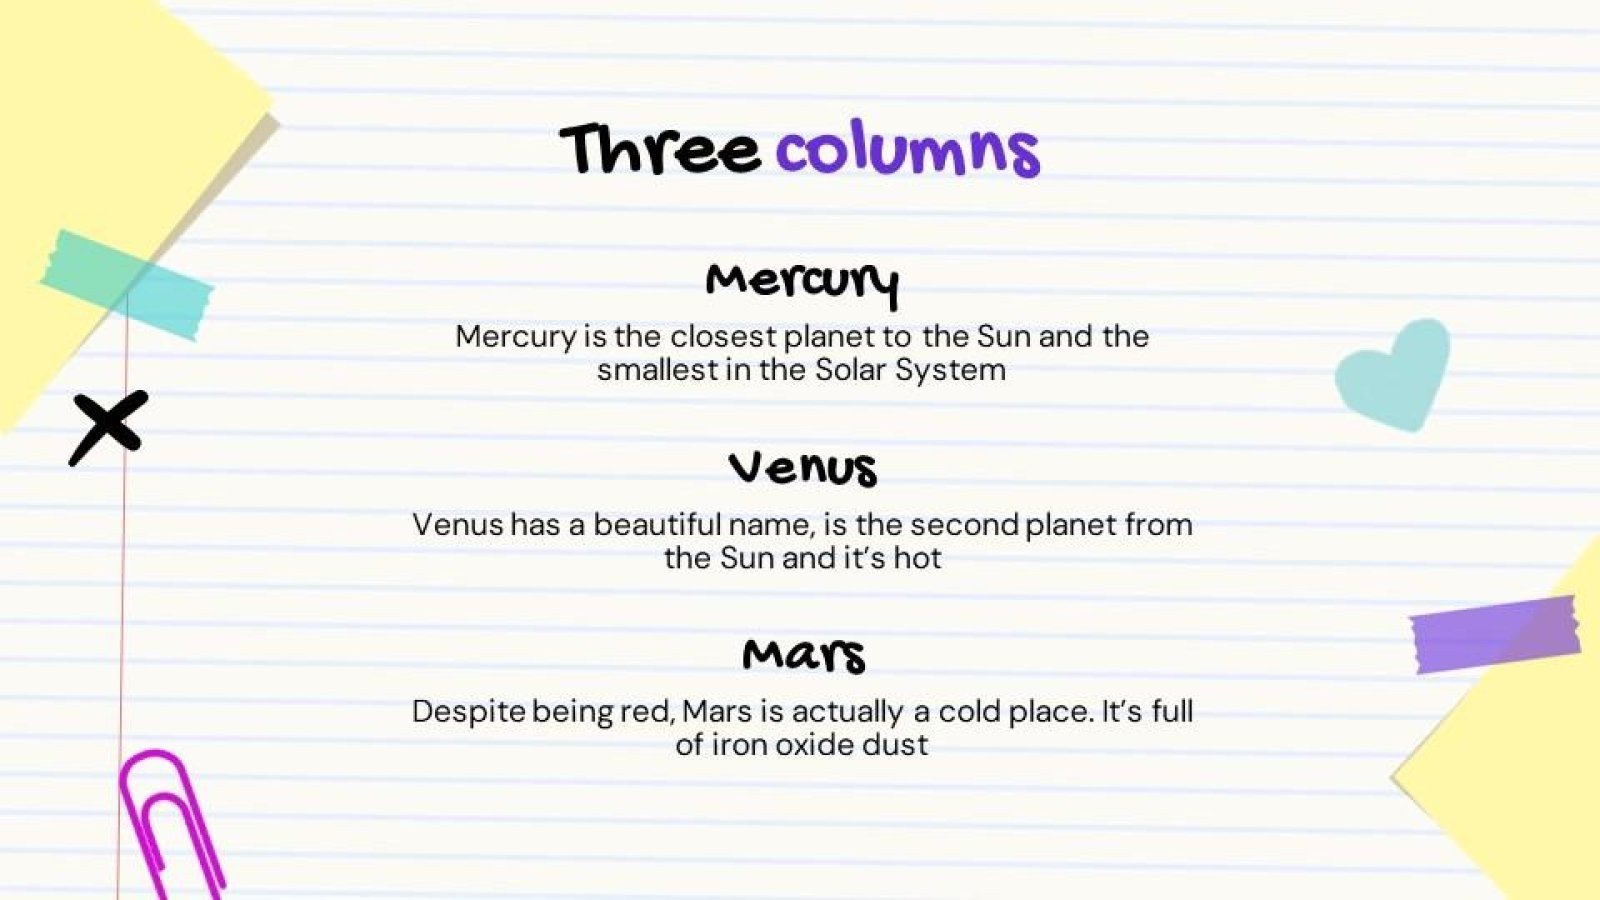 Three columns
Mercury
Mercury is the closest planet to the Sun and the
smallest in the Solar System
Venus
Venus has a beautiful name, is the second planet from
the Sun and it’s hot
Mars
Despite being red, Mars is actually a cold place. It’s full
of iron oxide dust